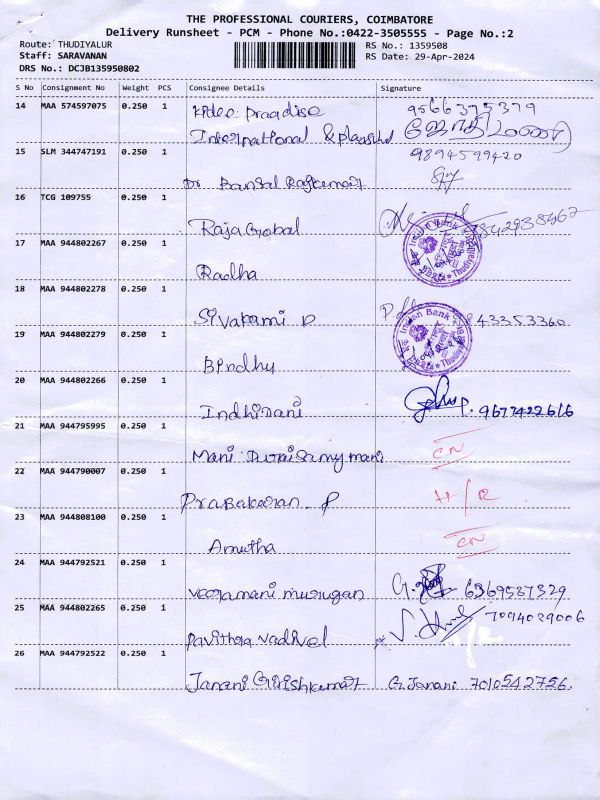 THE PROFESSIONAL COURIERS, COIMBATORE
Delivery Runsheet - PCM - Phone No.:0422-3505555 - Page No.:2
Route: THUDIYALUR
RS No.: 1359508
Staff: SARAVANAN
RS Date: 29-Apr-2024
DRS No.: DCJB135950802
S No Consignment No Weight PCS Consignee Details Signature
14 MAA 574597075 0.250 1 Kidee Praadise 9566375379
International & ஜோதிமணி
15 SLM 344747191 0.250 1 9894599420
Dr Bansal Rajkumar
16 TCG 109755 0.250 1
Raja Global
17 MAA 944802267 0.250 1 Indian Bank Thudiyalur
Radha
18 MAA 944802278 0.250 1
Sivakami P 43353360
19 MAA 944802279 0.250 1 Indian Bank Thudiyalur
Bindhu
20 MAA 944802266 0.250 1
Indhirani 9677422616
21 MAA 944795995 0.250 1
Mani Duraisamy mani CN
22 MAA 944790007 0.250 1
Prabakaran P H/R
23 MAA 944808100 0.250 1
Amutha CN
24 MAA 944792521 0.250 1
Veeramani murugan 6369587329
25 MAA 944802265 0.250 1 7094039006
Pavithra vadivel
26 MAA 944792522 0.250 1
Janani Girishkumar G. Janani 7010542756.